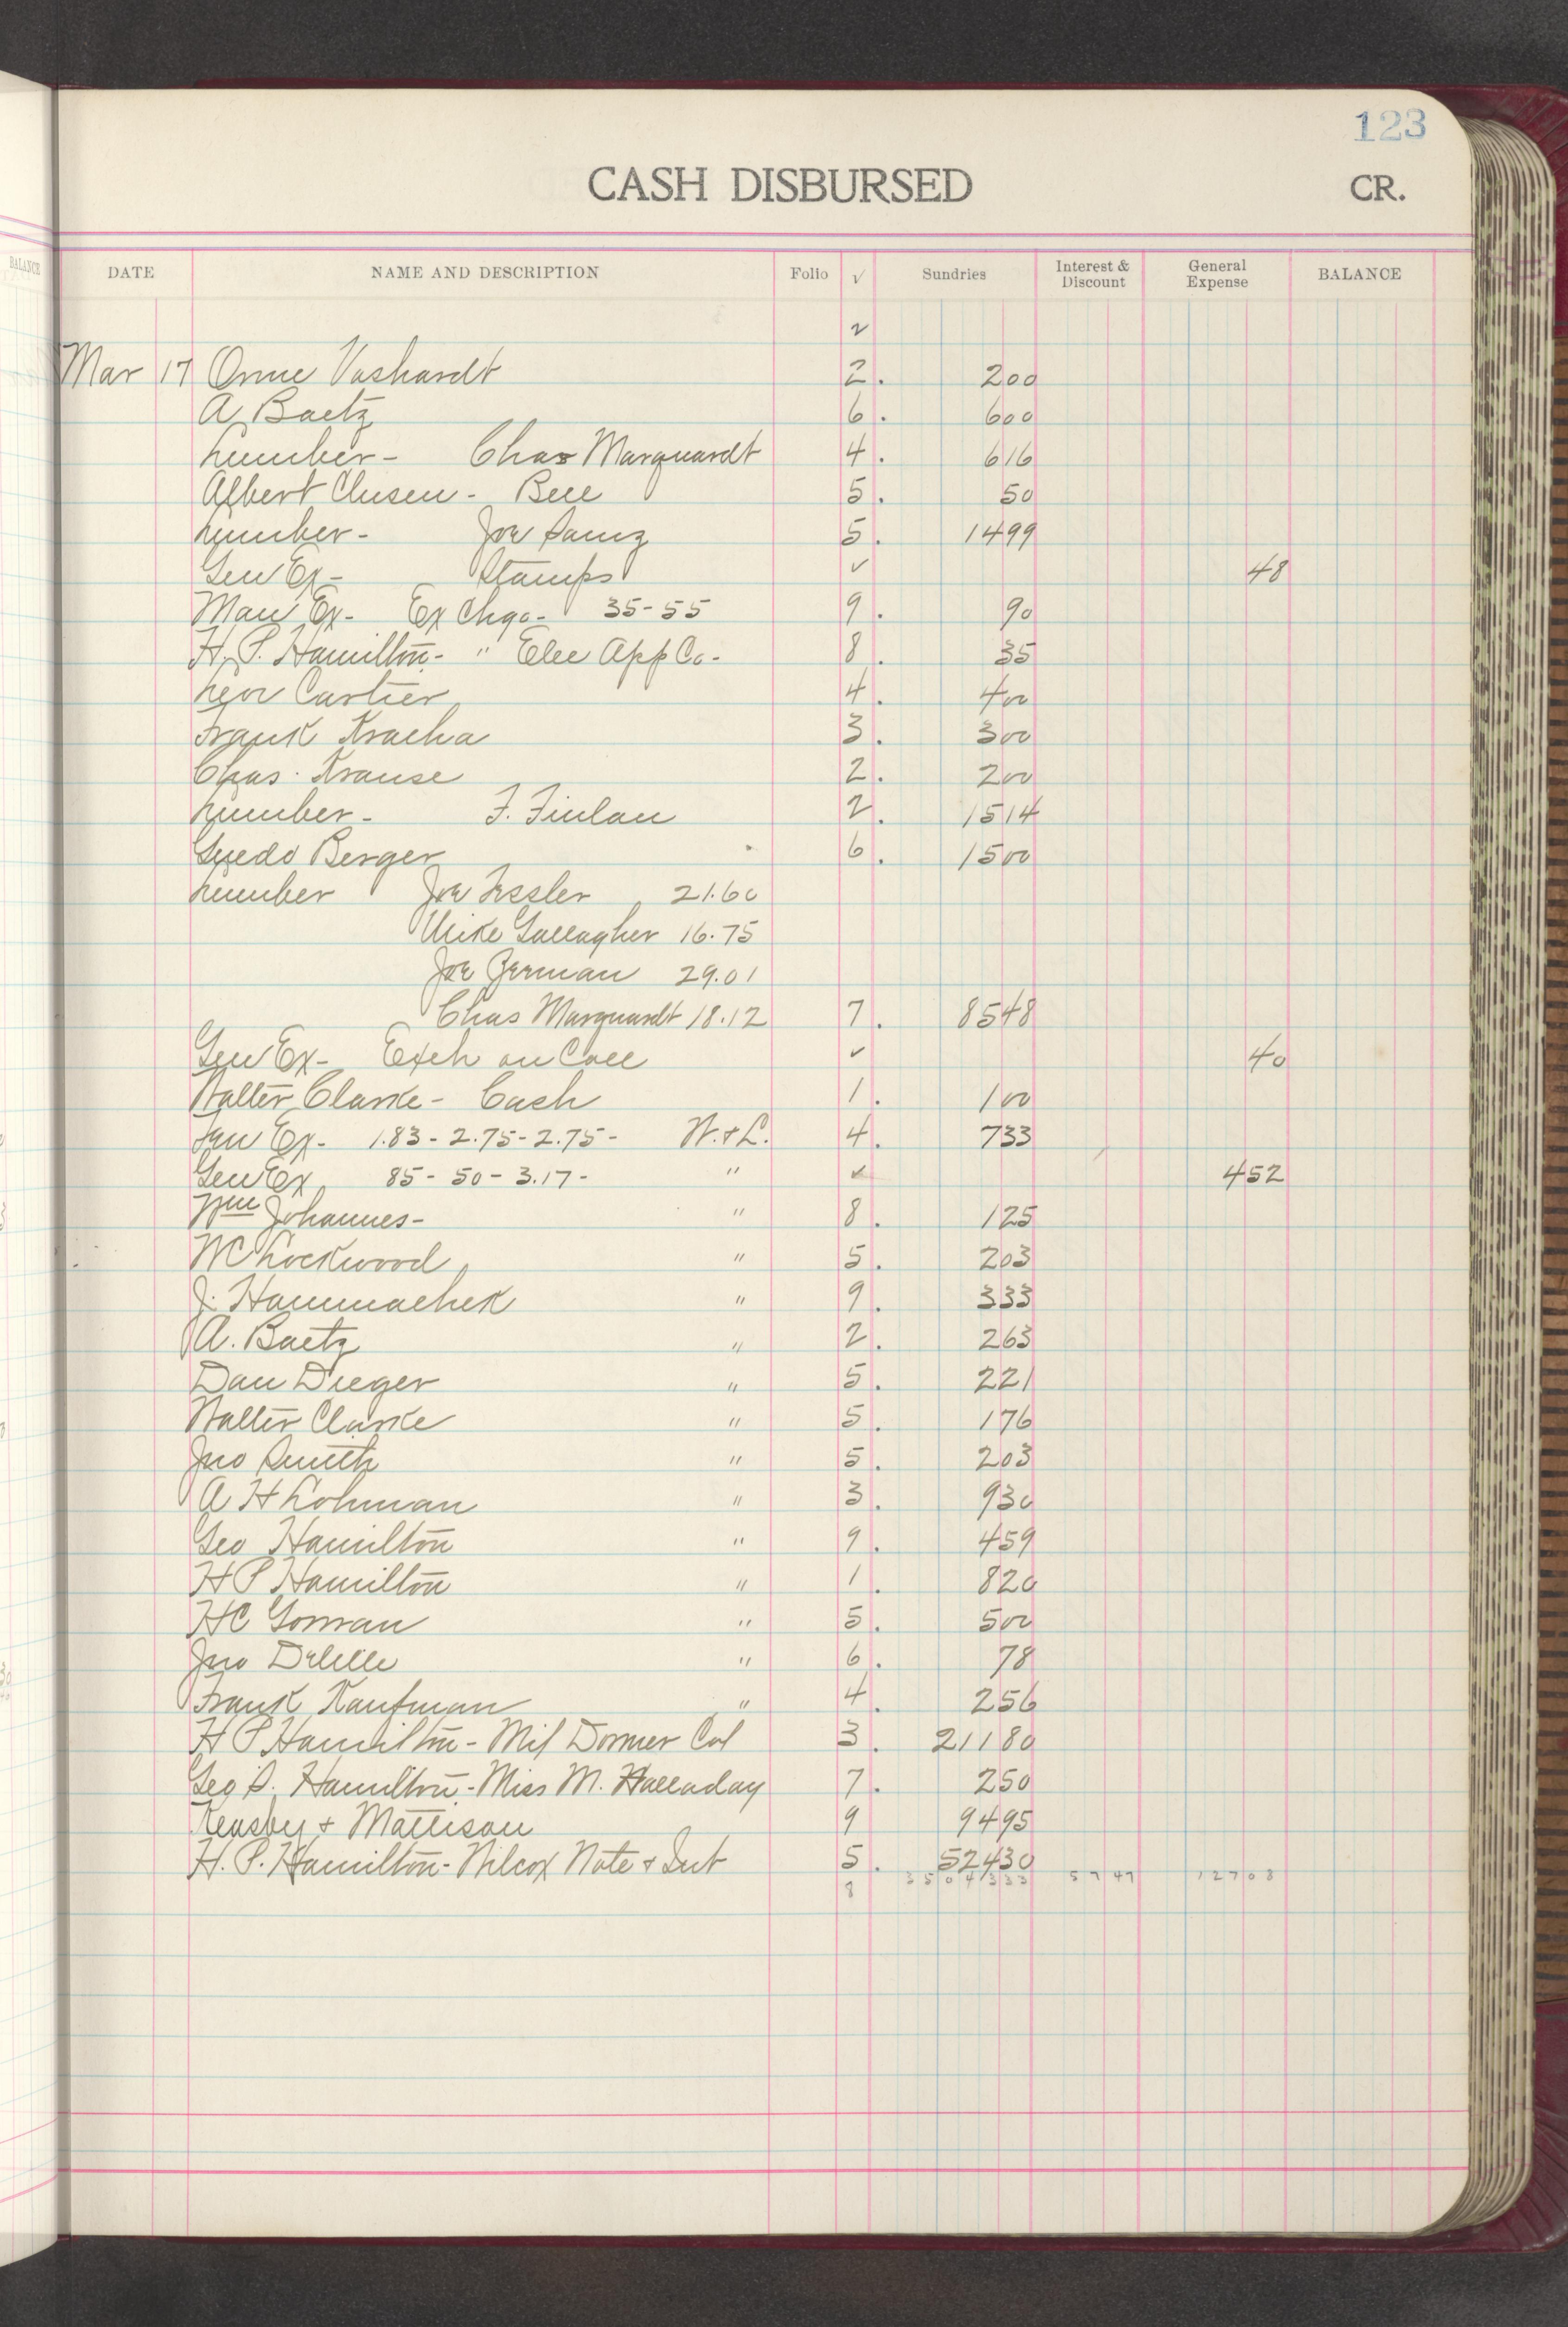 123
CASH DISBURSED CR.
BALANCE
DATE NAME AND DESCRIPTION Folio √ Sundries Interest & Discount General Expense BALANCE
2
Mar 17 Vashardt 2. 200
A Baetz 6. 600
Lumber - Chas Marquardt 4. 616
Albert Clusen - 5. 50
Lumber - Joe 5. 1499
Gen Ex - Stamps ✓ 48
Man Ex - Ex Chgo - 35-55 9. 90
H. P. Hamilton - " Elec App Co - 8. 35
Leon Cartier 4. 400
Frank Kracha 3. 300
Chas. Krause 2. 200
Lumber - F. Finlan 2. 1514
Guedo Berger 6. 1500
Lumber Joe Tessler 21.60
Mike Gallagher 16.75
Joe German 29.01
Chas Marquardt 18.12 7. 8548
Gen Ex - Exch on Coll ✓ 40
Walter Clarke - Cash 1. 100
Ex - 1.83 - 2.75 - 2.75 - W. & L. 4. 733
Gen Ex 85 - 50 - 3.17 - " ✓ 452
Wm Johannes - " 8. 125
WC Lockwood " 5. 203
J. Hammachek " 9. 333
A. Baetz " 2. 263
Dan Dreger " 5. 221
Walter Clarke " 5. 176
Jno Smith " 5. 203
A H Lohman " 3. 930
Geo Hamilton " 9. 459
H P Hamilton " 1. 820
HC Gorman " 5. 500
Jno Delille " 6. 78
Frank Kaufman " 4. 256
H P Hamilton - Mil Downer Col 3. 21180
Geo S. Hamilton - Miss M. Halladay 7. 250
Keasbey & Mattison 9 9495
H. P. Hamilton - Wilcox Note & Int 5. 52430
8 3504333 5747 12708